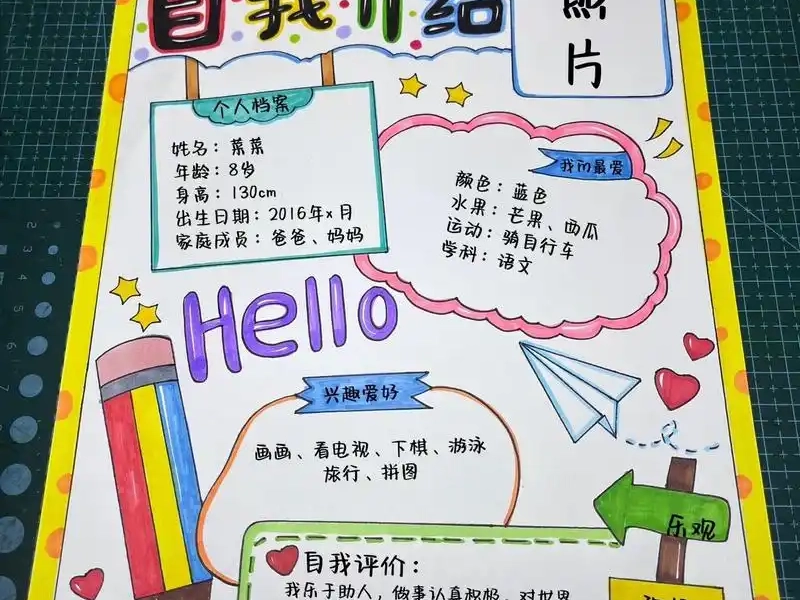 自我介绍
照
片
个人档案
姓名：菜菜
年龄：8岁
身高：130cm
出生日期：2016年x月
家庭成员：爸爸、妈妈
我的最爱
颜色：蓝色
水果：芒果、西瓜
运动：骑自行车
学科：语文
Hello
兴趣爱好
画画、看电视、下棋、游泳
旅行、拼图
乐观
自我评价：
我乐于助人，做事认真积极，对世界